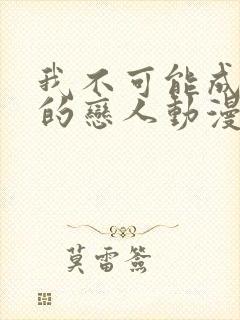 我不可能成
的戀人動漫
莫雷簽